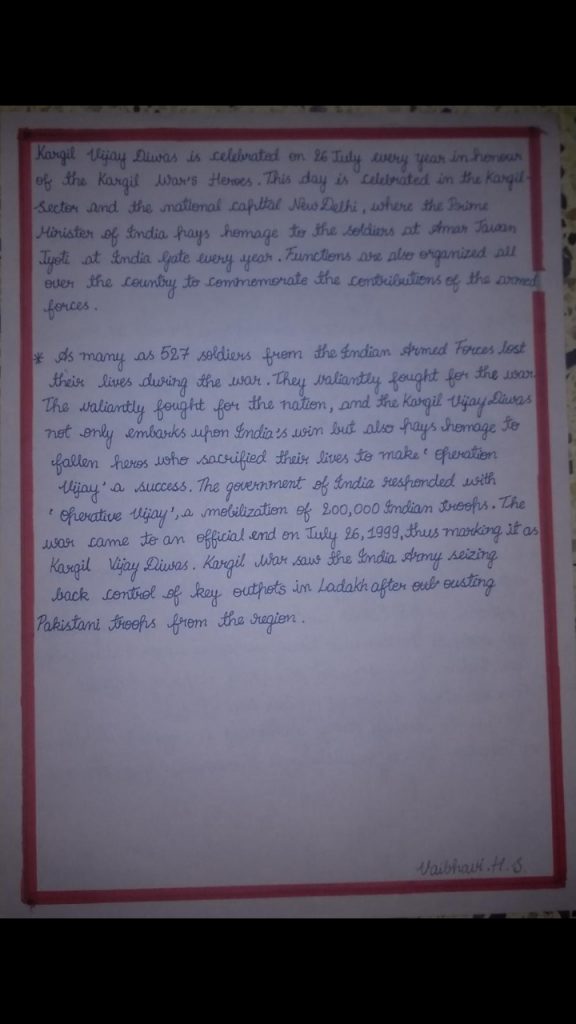 Kargil Vijay Diwas is celebrated on 26 July every year in honour
of the Kargil War's Heroes. This day is celebrated in the Kargil-
Sector and the national capital New Delhi, where the Prime
Minister of India pays homage to the soldiers at Amar Jawan
Jyoti at India Gate every year. Functions are also organized all
over the country to commemorate the contributions of the armed
forces.
* As many as 527 soldiers from the Indian Armed Forces lost
their lives during the war. They valiantly fought for the war.
The valiantly fought for the nation, and the Kargil Vijay Diwas
not only embarks upon India's win but also pays homage to
fallen heros who sacrified their lives to make 'Operation
Vijay' a success. The government of India responded with
'Operative Vijay', a mobilization of 200,000 Indian troops. The
war came to an official end on July 26, 1999, thus marking it as
Kargil Vijay Diwas. Kargil War saw the India Army seizing
back control of key outpots in Ladakh after ousting
Pakistani troops from the region.
Vaibhavi.H.S.